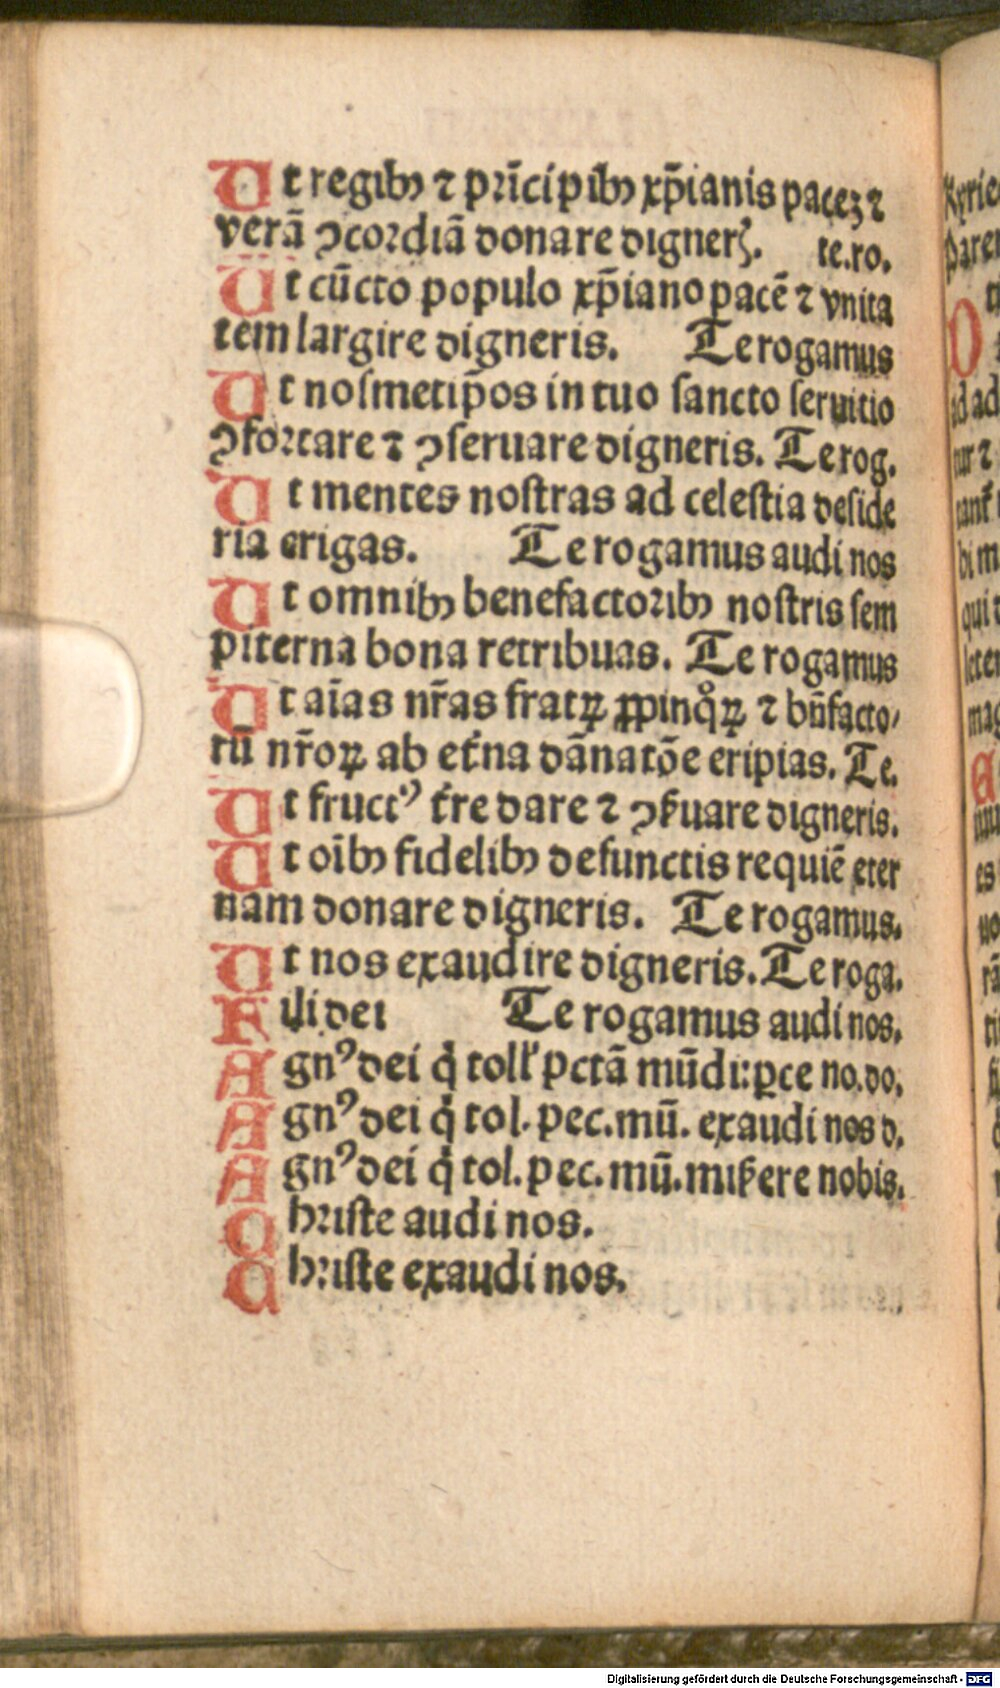 Ut regibꝫ ⁊ prīcipibꝫ xp̄ianis paceꝫ ⁊
verā ꝯcordiā donare digner̃. te.ro.
Ut cūcto populo xp̄iano pacē ⁊ vnita
tem largire digneris. Te rogamus
Ut noſmetip̄os in tuo ſancto ſeruitio
ꝯfortare ⁊ ꝯſeruare digneris. Te rog.
Ut mentes noſtras ad celeſtia deſide
ria erigas. Te rogamus audi nos
Ut omnibꝫ benefactoribꝫ noſtris ſem
piterna bona retribuas. Te rogamus
Ut aīas nr̄as fratꝝ ꝓpinqͦꝝ ⁊ bn̄facto⸗
rū nr̄oꝝ ab et̄na dānatōe eripias. Te.
Ut fruct⁹ t̄re dare ⁊ ꝯẜuare digneris.
Ut oībꝫ fidelibꝫ defunctis requiē eter
nam donare digneris. Te rogamus.
Ut nos exaudire digneris. Te roga.
Fili dei Te rogamus audi nos.
Agn⁹ dei q̇ toll' pctā mūdi: ꝑce no.do.
Agn⁹ dei q̇ tol. pec.mū. exaudi nos d.
Agn⁹ dei q̇ tol. pec. mū. miẜere nobis.
Chriſte audi nos.
Chriſte exaudi nos.
Kyrie
Pare
Digitalisierung gefördert durch die Deutsche Forschungsgemeinschaft - DFG